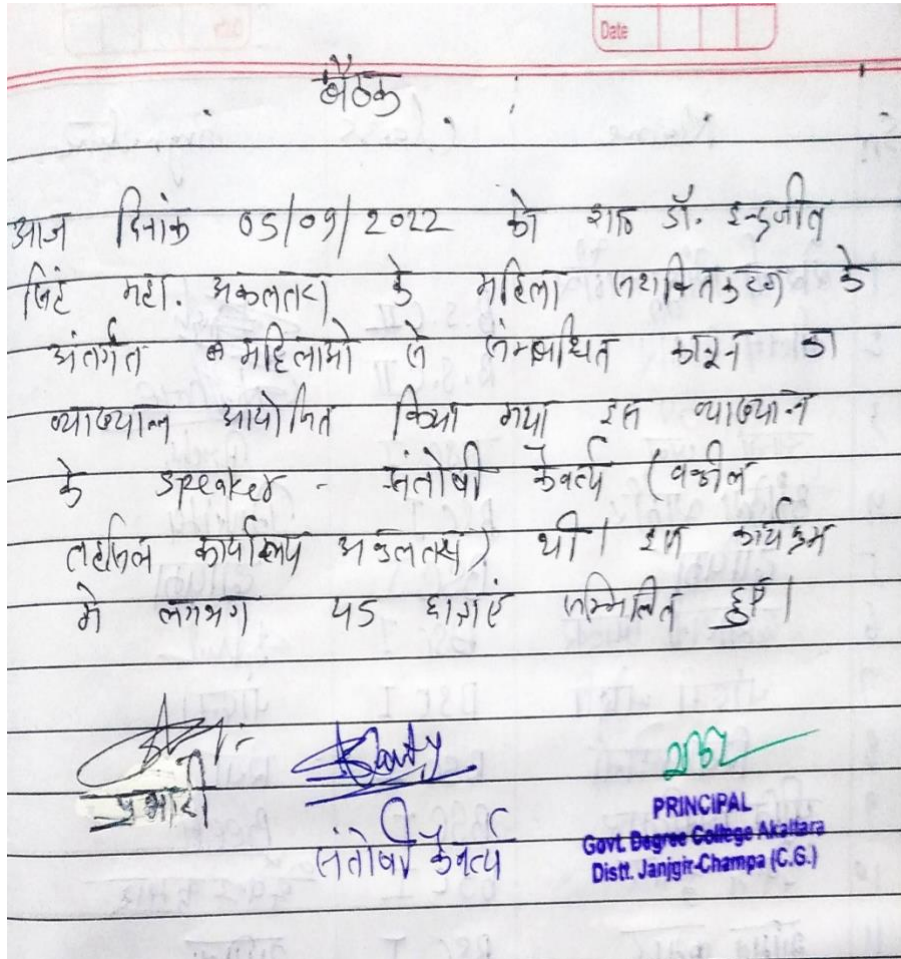 Date
बैठक
आज दिनांक 05/09/2022 को शास. डॉ. इन्द्रजीत
सिंह महा. अकलतरा के महिला सशक्तिकरण के
अंतर्गत महिलाओ से सम्बंधित कानून का
व्याख्यान आयोजित किया गया इस व्याख्यान
के speaker - संतोषी कैवर्त्य (वकील
तहसिल कार्यालय अकलतरा) थी। इस कार्यक्रम
मे लगभग 45 छात्राएं सम्मिलित हुए।
प्रभारी
संतोषी कैवर्त्य
PRINCIPAL
Govt. Degree College Akaltara
Distt. Janjgir-Champa (C.G.)